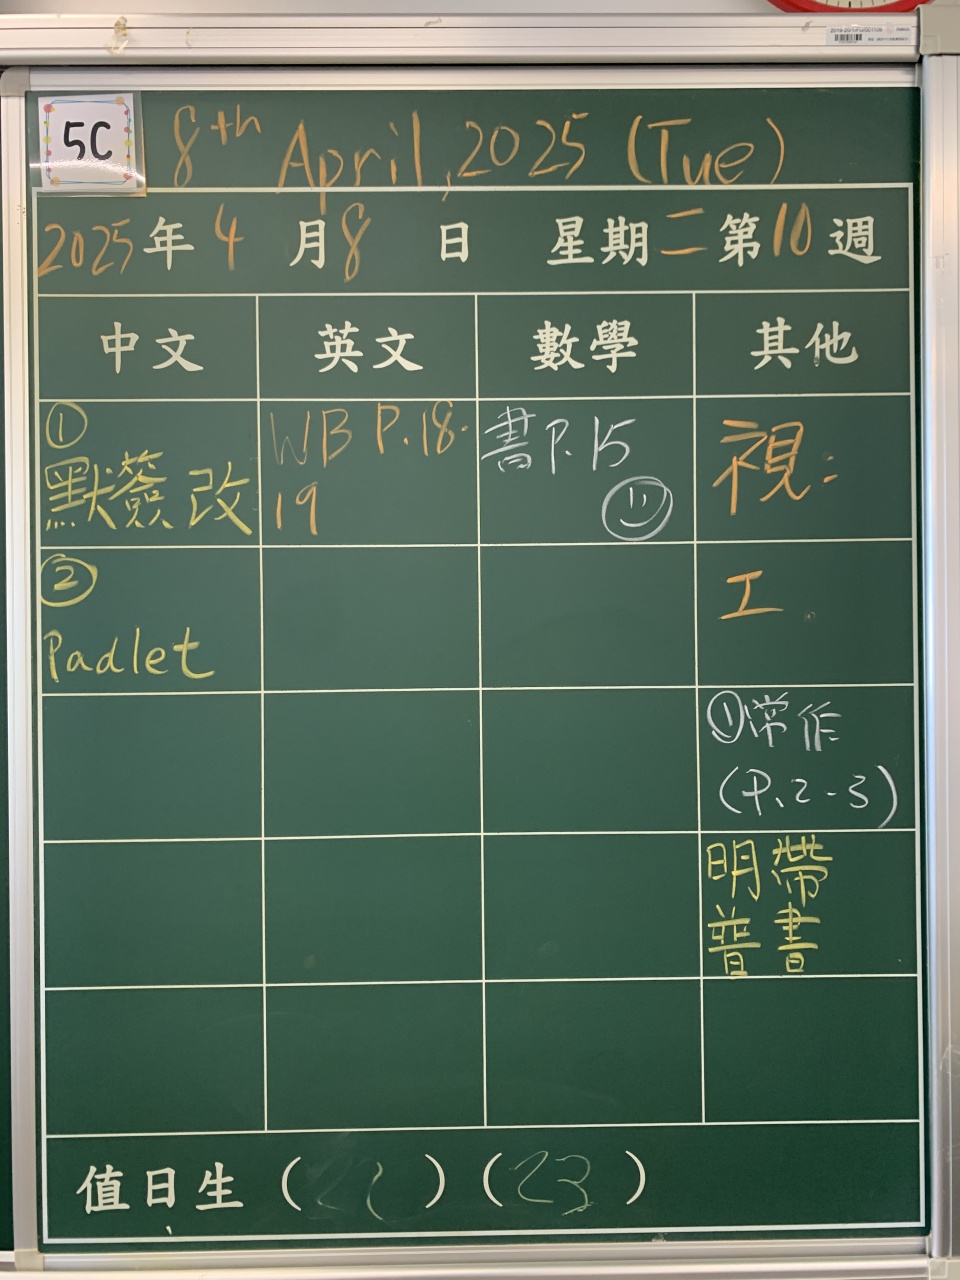 5C
8th April, 2025 (Tue)
2025年4月8日 星期二第10週
中文 英文 數學 其他
①
默簽改
WB P.18-
19
書P.15
視:
②
Padlet
工
①常作
(P.2-3)
明帶
普書
值日生 (22) (23)